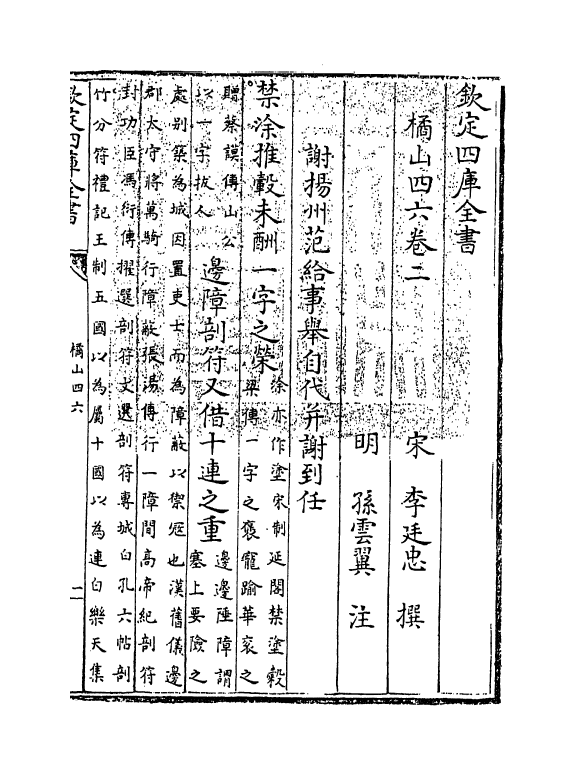 欽定四庫全書
橘山四六卷二
宋 李廷忠 撰
明 孫雲翼 注
謝揚州范給事舉自代并謝到任
禁涂推轂未酬一字之榮
涂亦作塗宋制延閣禁塗穀
梁傳一字之褒寵踰華衮之
贈蔡謨傳山公
以一字拔人
邊障剖符又借十連之重
邊邊陲障謂
塞上要險之
處別築為城因置吏士而為障蔽以禦寇也漢舊儀邊
郡太守將萬騎行障蔽張湯傳行一障間高帝紀剖符
封功臣馮衍傳擢選剖符文選剖符專城白孔六帖剖
竹分符禮記王制五國以為屬十國以為連白樂天集
欽定四庫全書
橘山四六